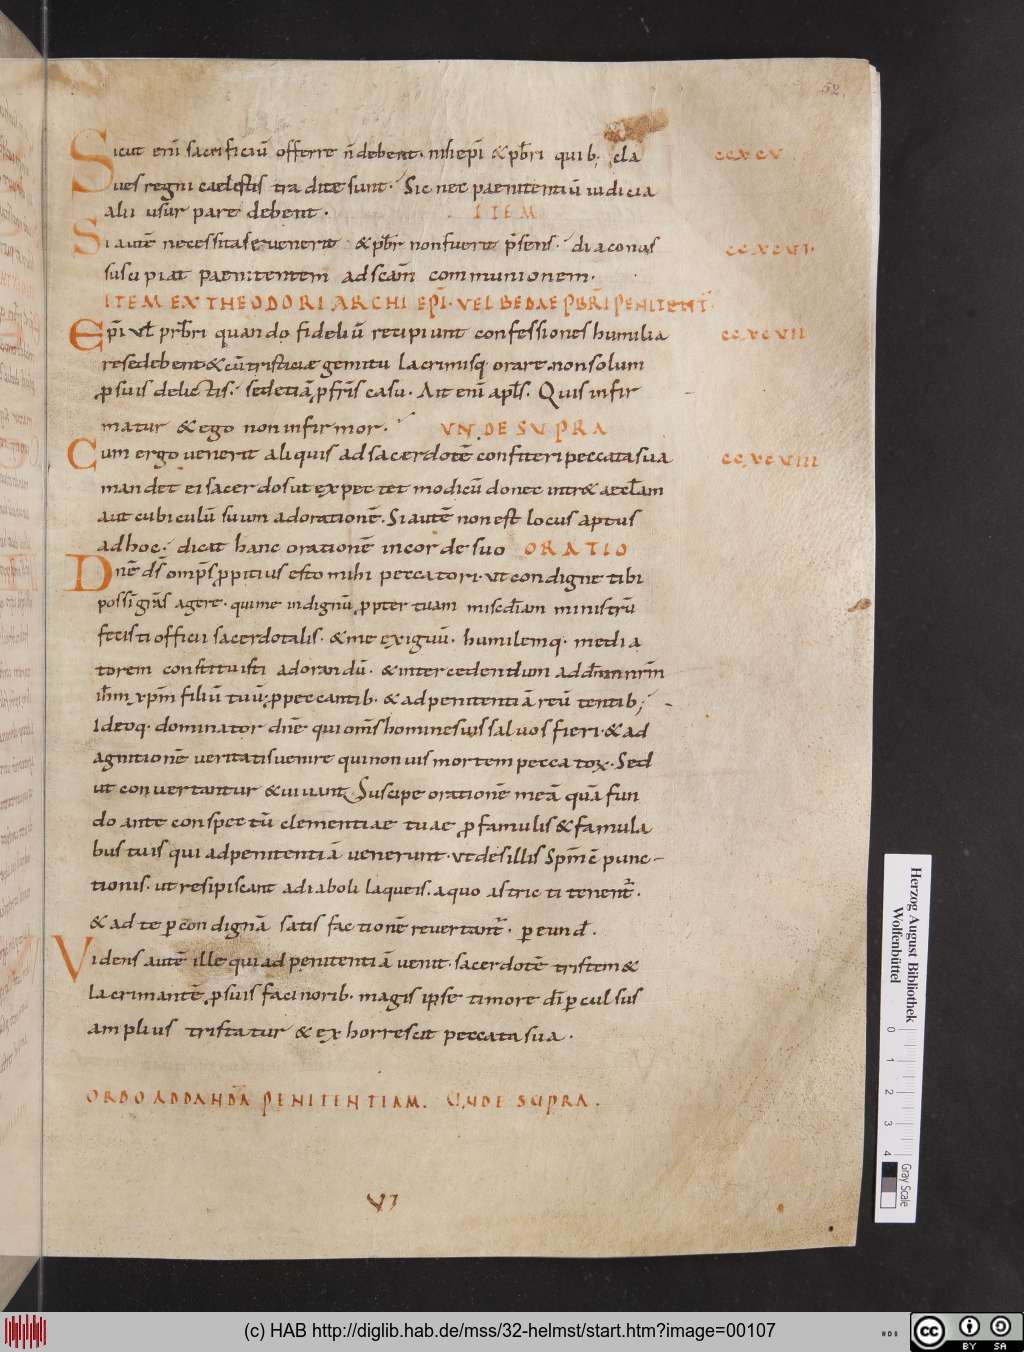 52.
Sicut eni sacrificiū offerre n̄ debent. nisi epī & pb̄ri quib; cla CCXCV
ues regni caelestis tradite sunt. Sic nec paenitentiū iudicia
alii usur pare debent. ITEM
Si autē necessitas evenerit & pb̄r non fuerit p̄sens. diaconus CCXCVI.
suscipiat paenitentem ad scām communionem.
ITEM EX THEODORI ARCHI EPĪ. VEL BEDAE PB̄RI PENITENT̄.
Epī ul̄ pr̄bri quando fideliū recipiunt confessiones humilia CCXCVII
re se debent & cū tristiciæ gemitu lacrimisq. orare. non solum
ꝓ suis delictis. sed etiā ꝓ fr̄is casu. Ait enī apl̄s. Quis infir
matur & ego non infirmor. UNDE SUPRA
Cum ergo venerit aliquis ad sacerdotē confiteri peccata sua CCXCVIII
mandet ei sacerdos ut expectet modicū donec intr& aecl̄am
aut cubiculū suum ad orationē. Si autē non est locus aptus
ad hoc. dicat hanc orationē in corde suo ORATIO
Dn̄e ds̄ omp̄s ꝓpitius esto mihi peccatori. ut condigne tibi
possī grās agere. qui me indignū ꝓpter tuam misc̄diam ministrū
fecisti officii sacerdotalis. & me exiguū. humilemq. media
torem constituisti ad orandū. & intercedendum ad dn̄m nr̄m
ih̄m xp̄m filiū tuū ꝓ peccantib. & ad penitentiā reū tentib;
Ideoq. dominator dn̄e qui om̄s homines uis saluos fieri. & ad
agnitionē veritatis venire qui non uis mortem peccatoꝝ. Sed
ut convertantur & uiuant. Suscipe orationē meā quā fun
do ante conspectū clementiae tuae ꝓ famulis & famula
bus tuis qui ad penitentiā venerunt. ut des illis Spm̄ cōpunc-
tionis. ut resipiscant a diaboli laqueis. a quo astricti tenent᷑.
& ad te ꝑ condignā satisfactionē revertant᷑. ꝑ eund̄.
Videns autē ille qui ad penitentiā uenit. sacerdotē tristem &
lacrimantē ꝓ suis facinorib. magis ipse timore dī ꝑculsus
amplius tristatur & exhorrescit peccata sua.
ORDO AD DANDĀ PENITENTIAM. UNDE SUPRA.
VI
Herzog August Bibliothek
Wolfenbüttel
0 1 2 3 4
Gray Scale
(c) HAB http://diglib.hab.de/mss/32-helmst/start.htm?image=00107
cc BY SA